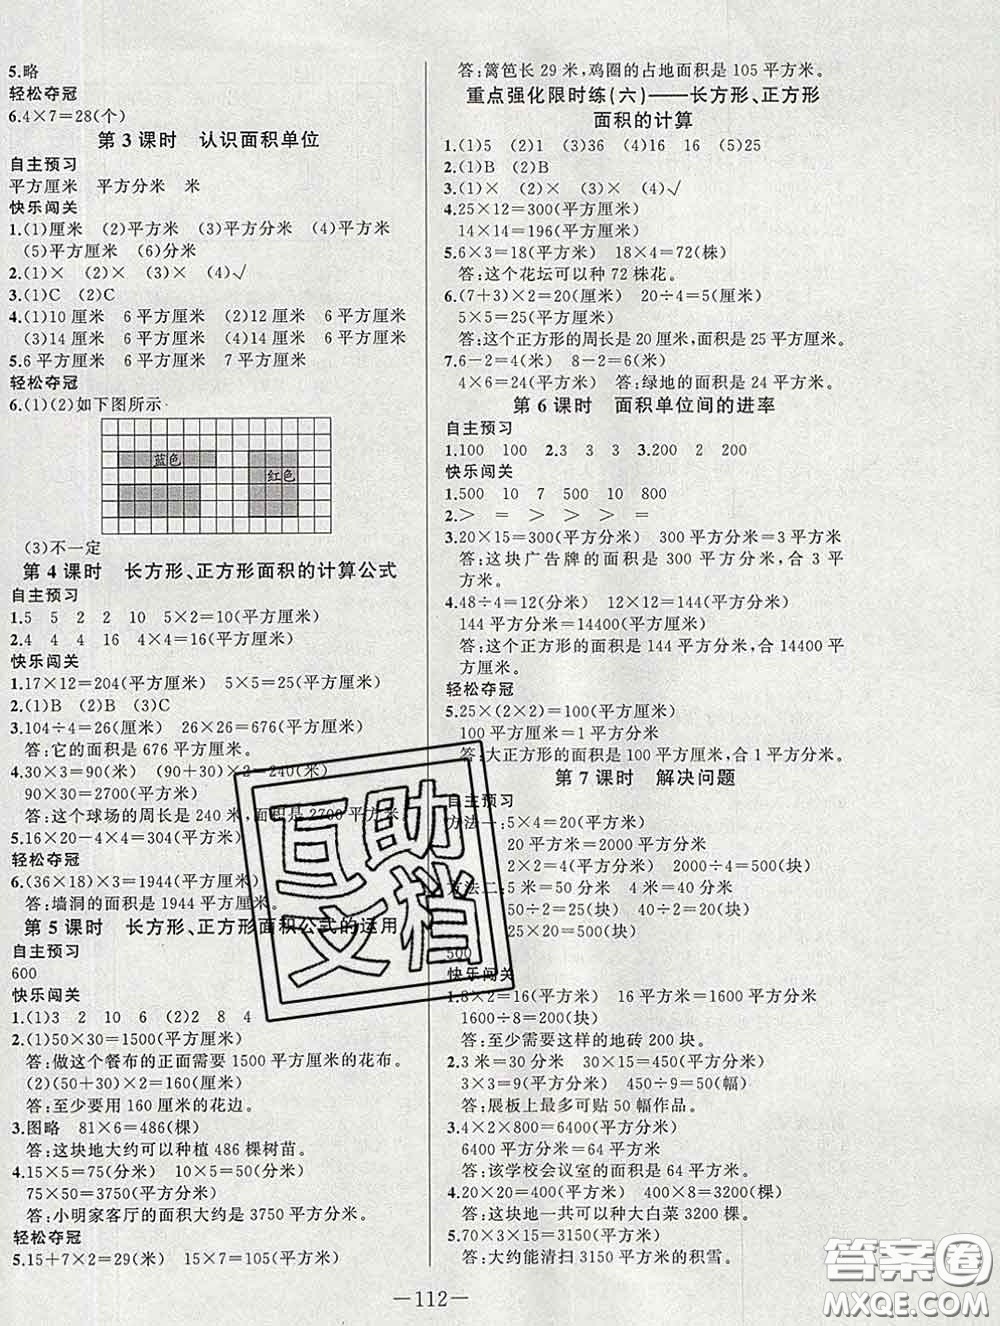 5.略
轻松夺冠
6.4×7=28(个)
第3课时 认识面积单位
自主预习
平方厘米 平方分米 米
快乐闯关
1.(1)厘米 (2)平方米 (3)平方分米 (4)平方米
(5)平方厘米 (6)分米
2.(1)× (2)× (3)× (4)√
3.(1)C (2)C
4.(1)10厘米 6平方厘米 (2)12厘米 6平方厘米
(3)14厘米 6平方厘米 (4)14厘米 6平方厘米
5.6平方厘米 6平方厘米 7平方厘米
轻松夺冠
6.(1)(2)如下图所示
蓝色
红色
(3)不一定
第4课时 长方形、正方形面积的计算公式
自主预习
1.5 5 2 2 10 5×2=10(平方厘米)
2.4 4 4 16 4×4=16(平方厘米)
快乐闯关
1.17×12=204(平方厘米) 5×5=25(平方厘米)
2.(1)B (2)B (3)C
3.104÷4=26(厘米) 26×26=676(平方厘米)
答:它的面积是676平方厘米。
4.30×3=90(米) (90+30)×2=240(米)
90×30=2700(平方米)
答:这个球场的周长是240米,面积是2700平方米。
5.16×20-4×4=304(平方米)
轻松夺冠
6.(36×18)×3=1944(平方厘米)
答:墙洞的面积是1944平方厘米。
第5课时 长方形、正方形面积公式的运用
自主预习
600
快乐闯关
1.(1)3 2 10 6 (2)2 8 4
2.(1)50×30=1500(平方厘米)
答:做这个餐布的正面需要1500平方厘米的花布。
(2)(50+30)×2=160(厘米)
答:至少要用160厘米的花边。
3.图略 81×6=486(棵)
答:这块地大约可以种植486棵树苗。
4.15×5=75(分米) 10×5=50(分米)
75×50=3750(平方分米)
答:小明家客厅的面积大约是3750平方分米。
轻松夺冠
5.15+7×2=29(米) 15×7=105(平方米)
答:篱笆长29米,鸡圈的占地面积是105平方米。
重点强化限时练(六)——长方形、正方形
面积的计算
1.(1)5 (2)1 (3)36 (4)16 16 (5)25
2.(1)B (2)B
3.(1)× (2)× (3)× (4)√
4.25×12=300(平方厘米)
14×14=196(平方厘米)
5.6×3=18(平方米) 18×4=72(株)
答:这个花坛可以种72株花。
6.(7+3)×2=20(厘米) 20÷4=5(厘米)
5×5=25(平方厘米)
答:这个正方形的周长是20厘米,面积是25平方厘米。
7.6-2=4(米) 8-2=6(米)
4×6=24(平方米) 答:绿地的面积是24平方米。
第6课时 面积单位间的进率
自主预习
1.100 100 2.3 3 3 3.200 2 200
快乐闯关
1.500 10 7 500 10 800
2.> = > > > =
3.20×15=300(平方分米) 300平方分米=3平方米
答:这块广告牌的面积是300平方分米,合3平
方米。
4.48÷4=12(分米) 12×12=144(平方分米)
144平方分米=14400(平方厘米)
答:这个正方形的面积是144平方分米,合14400
平方厘米。
轻松夺冠
5.25×(2×2)=100(平方分米)
100平方分米=1平方米
答:大正方形的面积是100平方分米,合1平方米。
第7课时 解决问题
自主预习
方法一:5×4=20(平方米)
20平方米=2000平方分米
2×2=4(平方分米) 2000÷4=500(块)
方法二:5米=50分米 4米=40分米
50÷2=25(块) 40÷2=20(块)
20×25=500(块)
500
快乐闯关
1.8×2=16(平方米) 16平方米=1600平方分米
1600÷8=200(块)
答:至少需要这样的地砖200块。
2.3米=30分米 30×15=450(平方分米)
3×3=9(平方分米) 450÷9=50(幅)
答:展板上最多可贴50幅作品。
3.(4×4)×2×200=6400(平方分米)
6400平方分米=64平方米
答:该学校会议室的面积是64平方米。
4.20×20=400(平方米) 400×8=3200(棵)
答:这块地一共可以种大白菜3200棵。
5.70×3×15=3150(平方米)
答:大约能清扫3150平方米的积雪。
互助
文档
答案圈
MXQE.COM
—112—